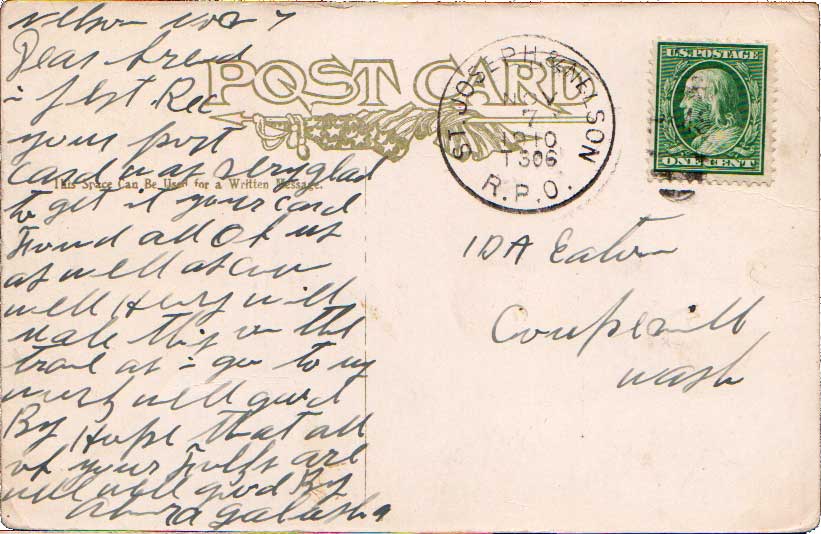 Nelson Nov 7
Dear Freud
i Jest Rec
your post
card was very glad
to get it your card
Found all Of us
as well as can
well Henry will
male this on the
trane as i go to my
work well good
By Hope that all
of your Folks are
well well good By
POST CARD
This Space Can Be Used for a Written Message.
ST. JOSEPH & NELSON
NOV
7
1910
T 306
R.P.O.
U.S. POSTAGE
ONE CENT
IDA Eaton
Coupevill
Wash